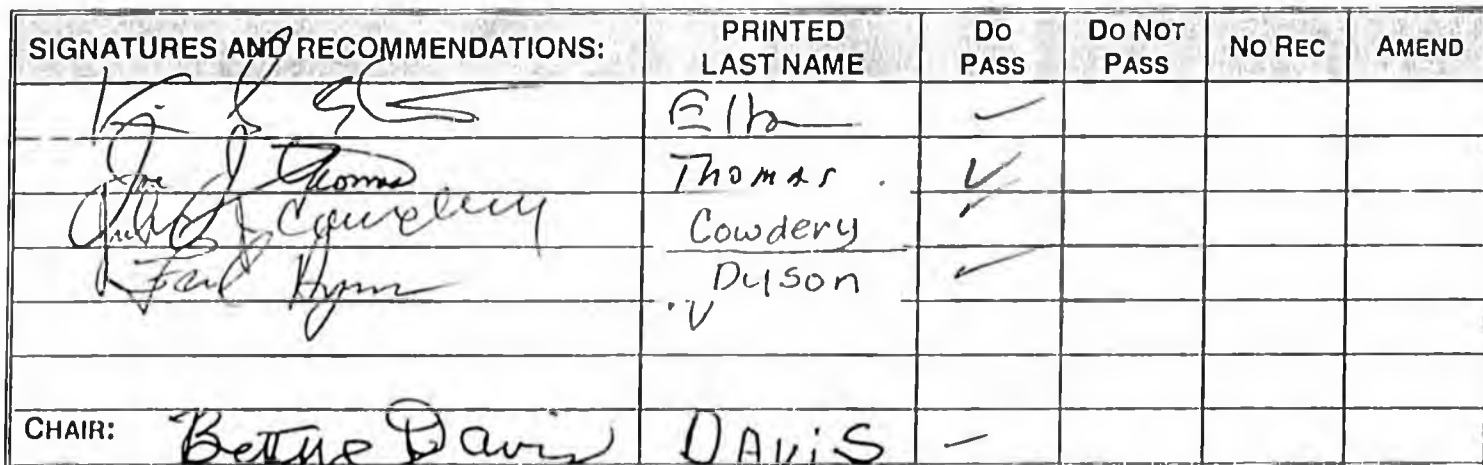 SIGNATURES AND RECOMMENDATIONS: PRINTED LAST NAME DO PASS DO NOT PASS NO REC AMEND
Thomas Thomas ✓
Cowdery Cowdery ✓
Dyson ✓
CHAIR: Bettye Davis DAVIS –